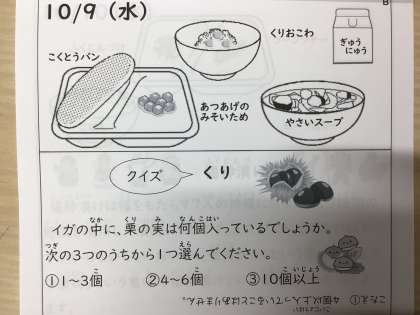 10/9（水）
B
くりおこわ
ぎゅう
にゅう
こくとうパン
あつあげの
みそいため
やさいスープ
クイズ
くり
イガの中に、栗の実は何個入っているでしょうか。
次の3つのうちから1つ選んでください。
①1〜3個
②4〜6個
③10個以上
こたえ①
4個以上入っていることはありません。